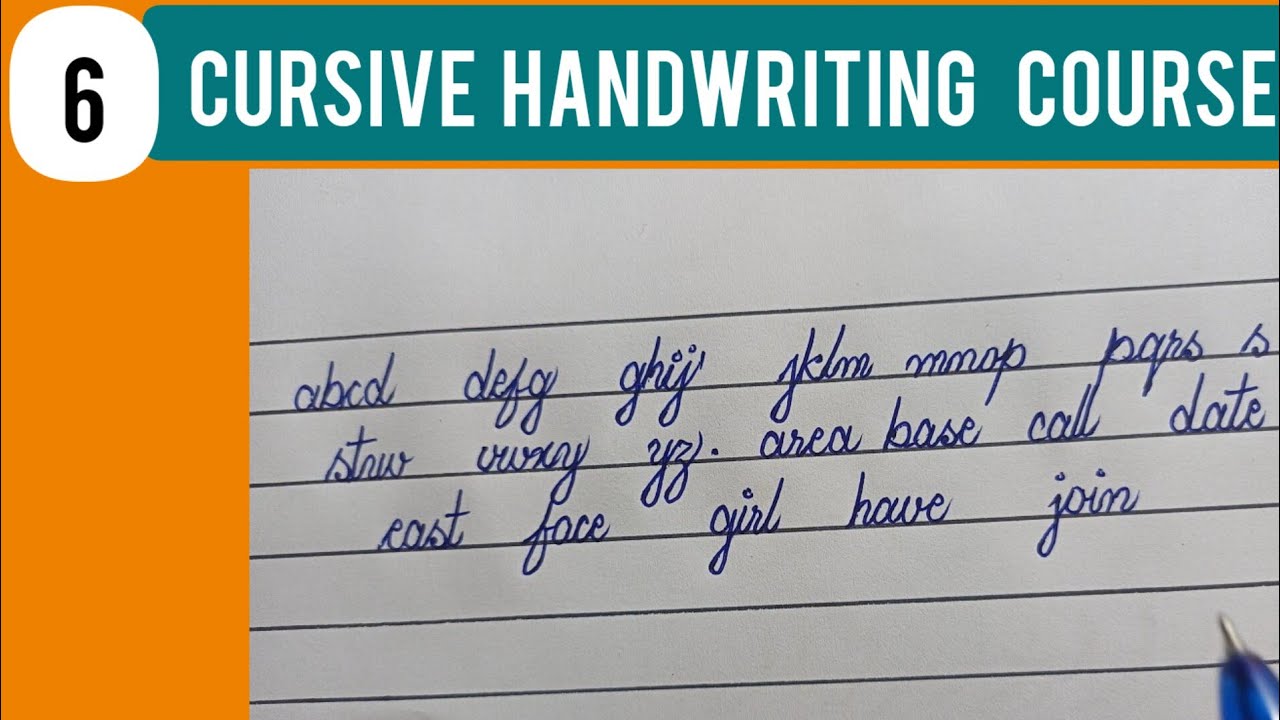 6 CURSIVE HANDWRITING COURSE
abcd defg ghij jklm mnop pqrs s
stuv vwxy yz. area base call date
east face girl have join